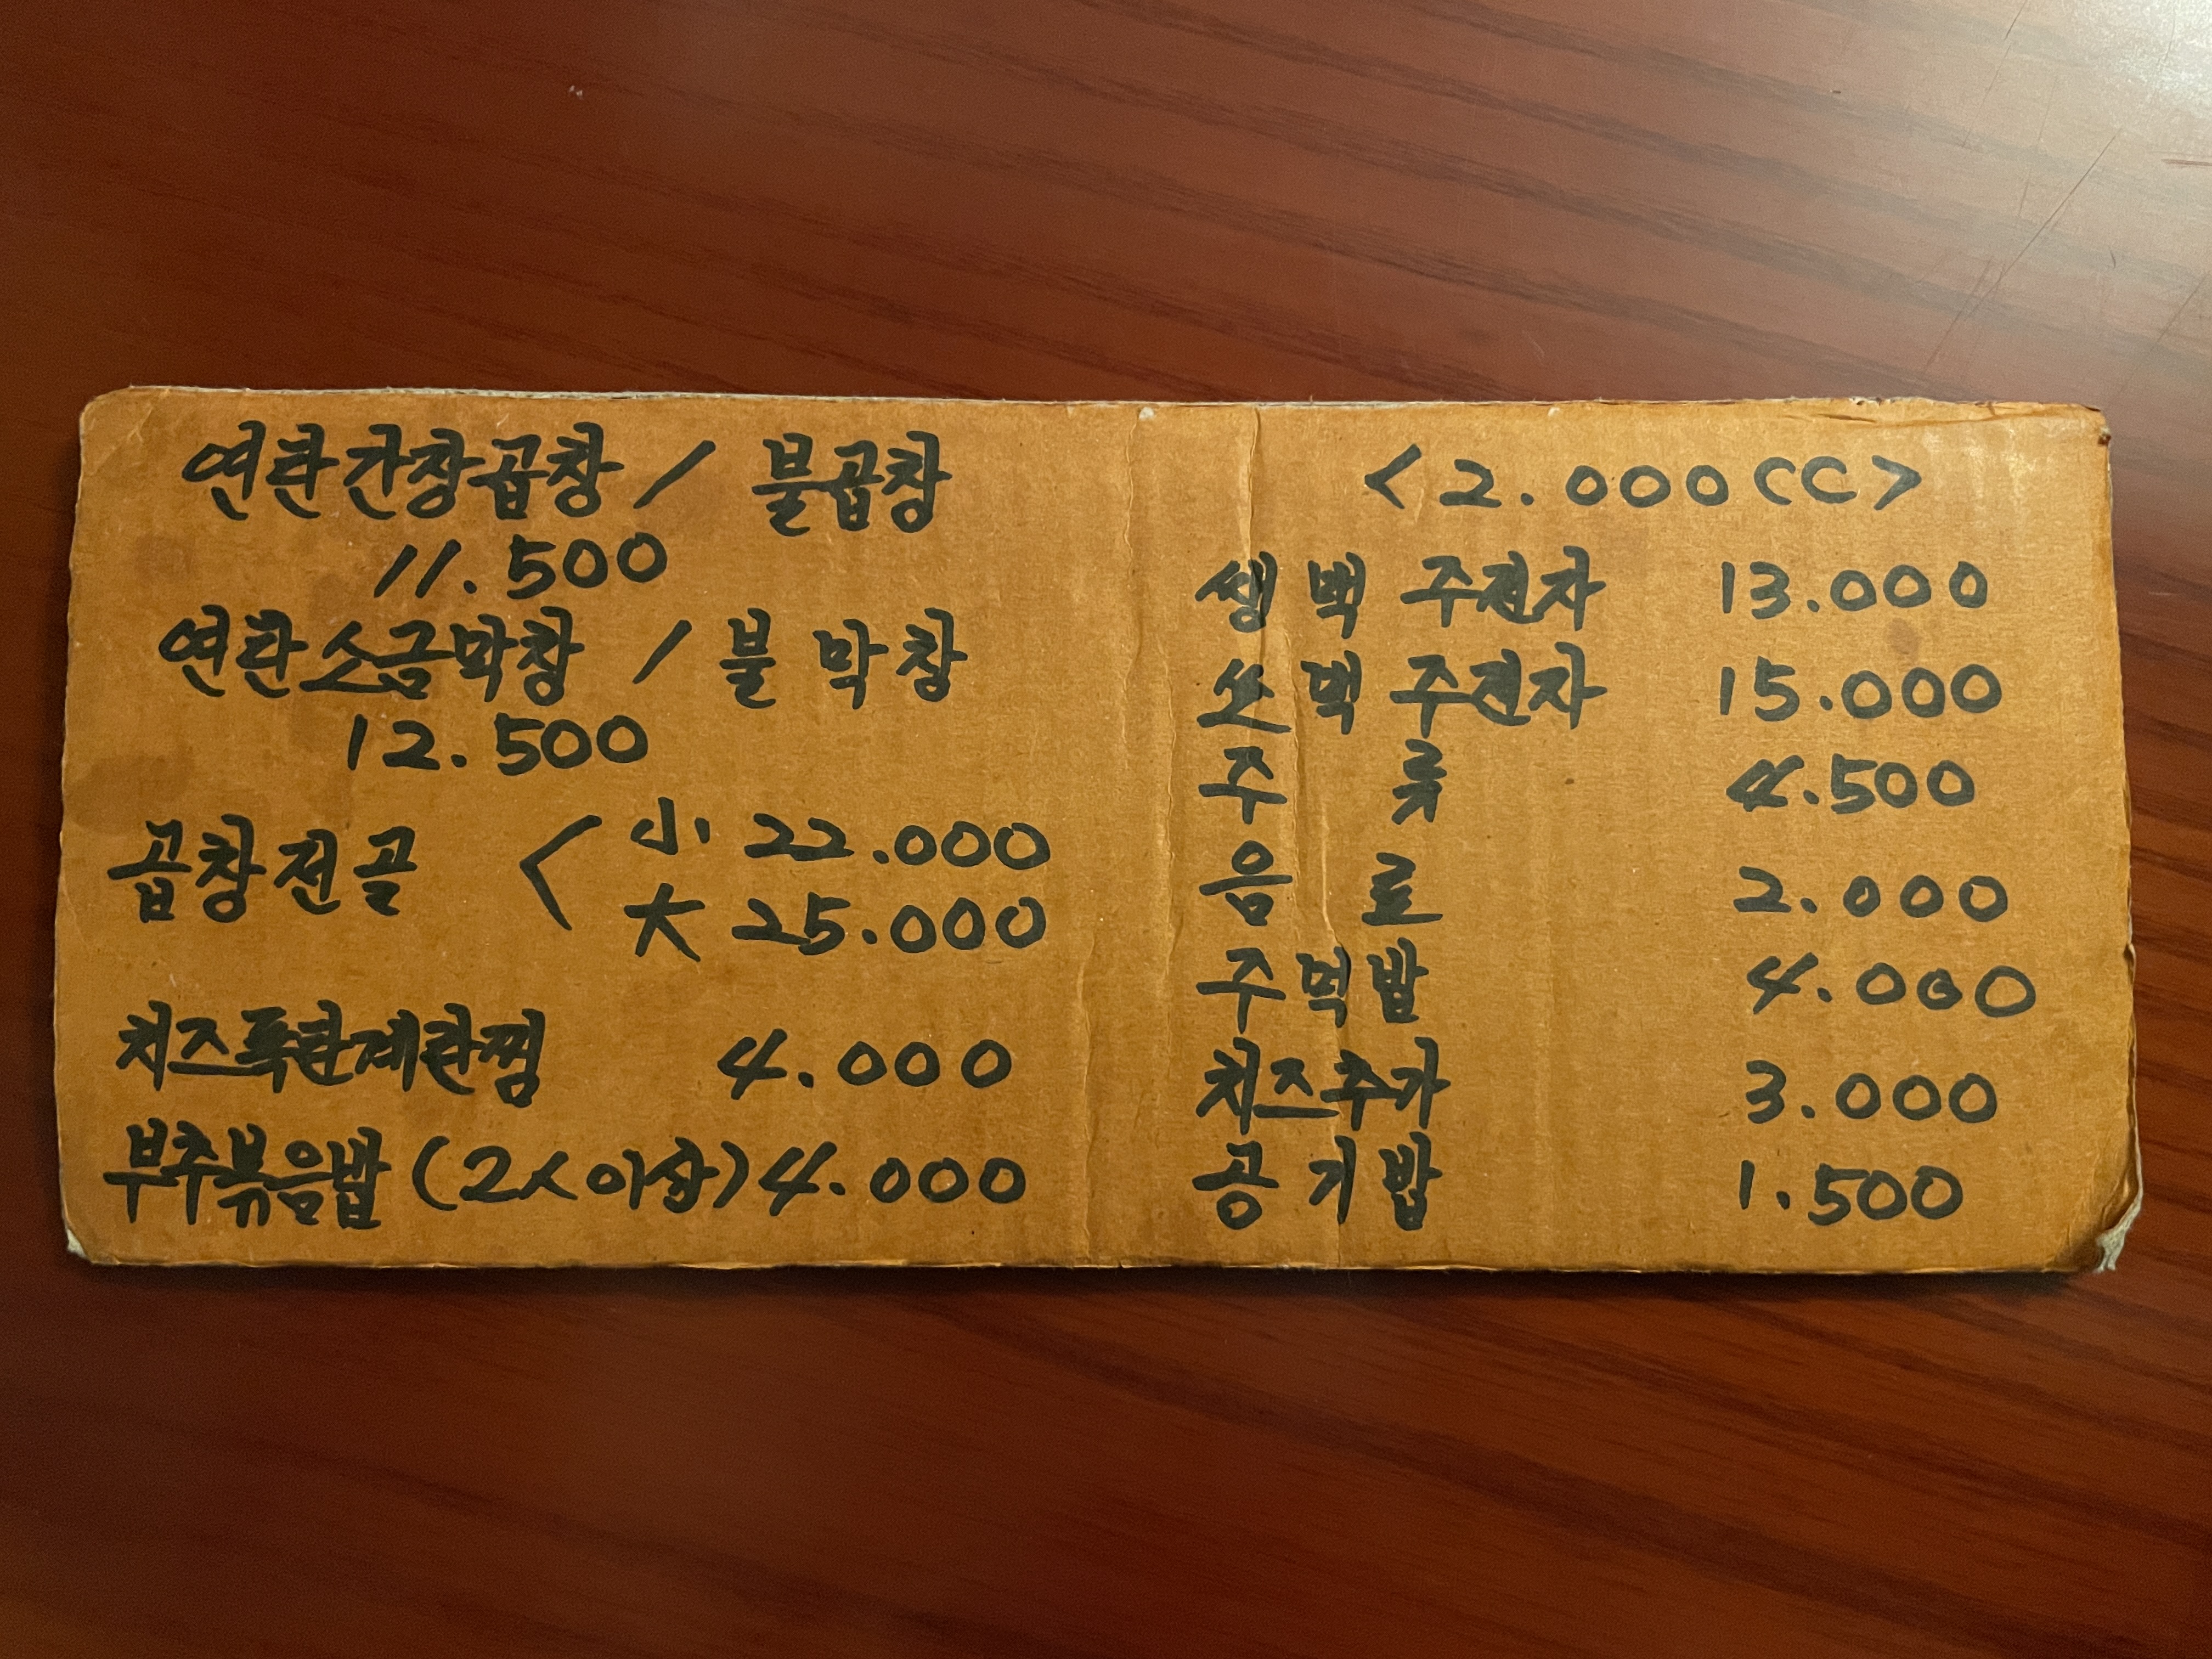 연탄간장곱창 / 불곱창
11.500
연탄소금막창 / 불 막창
12.500
곱창전골 < 小 22.000
大 25.000
치즈폭탄계란찜 4.000
부추볶음밥 (2人이상) 4.000
<2.000CC>
생 맥 주전자 13.000
쏘 맥 주전자 15.000
주 류 4.500
음 료 2.000
주먹밥 4.000
치즈추가 3.000
공기밥 1.500